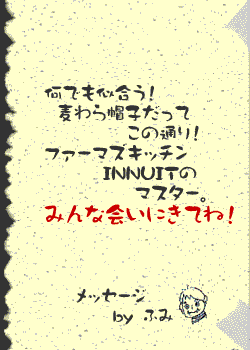 何でも似合う!
麦わら帽子だって
この通り!
ファーマズキッチン
INNUITの
マスター。
みんな会いにきてね!
メッセージ
by ふみ